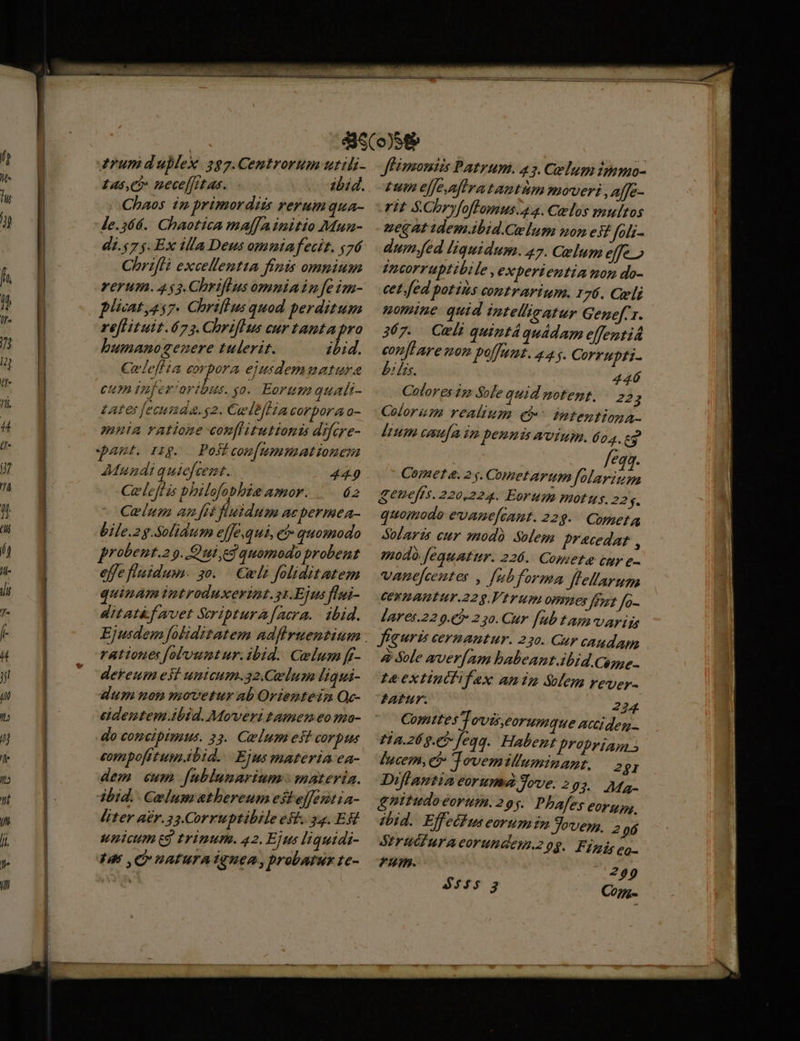 trum duplex. 387. Centrorum utili-
tas, & necessitas. ibid.
Chaos in primordiis rerum qua-
le. 366. Chaotica massa initio Mun-
di. 575. Ex illa Deus omnia fecit. 576
Christi excellentia finis omnium
rerum. 453. Christus omnia in se im-
plicat, 457. Christus quod perditum
restituit. 673. Christus cur tanta pro
humano genere tulerit. ibid.
Cælestia corpora ejusdem naturæ
cum inferioribus. 50. Eorum quali-
tates secundæ. 52. Cælestia corpora o-
mnia ratione constitutionis discre-
pant. 118. Post consummationem
Mundi quiescent. 449
Cælestis philosophiæ amor. 62
Cælum an sit fluidum ac permea-
bile. 28. Solidum esse, qui, & quomodo
probent. 29. Qui, & quomodo probent
esse fluidum. 30. Cæli soliditatem
quinam introduxerint. 31. Ejus flui-
ditati favet Scriptura sacra. ibid.
Ejusdem soliditatem adstruentium
rationes solvuntur. ibid. Cælum si-
dereum est unicum. 32. Cælum liqui-
dum non movetur ab Oriente in Oc-
cidentem. ibid. Moveri tamen eo mo-
do concipimus. 33. Cælum est corpus
compositum. ibid. Ejus materia ea-
dem cum sublunarium materia.
ibid. Cælum æthereum est essentia-
liter aër. 33. Corruptibile est. 34. Est
unicum & trinum. 42. Ejus liquidi-
tas, & natura ignea, probatur te-
stimoniis Patrum. 43. Cælum immo-
tum esse, astra tantùm moveri, asse-
rit S. Chrysostomus. 44. Cælos multos
negat idem. ibid. Cælum non est soli-
dum, sed liquidum. 47. Cælum esse
incorruptibile, experientia non do-
cet, sed potiùs contrarium. 176. Cæli
nomine quid intelligatur Genes. 1.
367. Cæli quintâ quâdam essentiâ
constare non possunt. 445. Corrupti-
bilis. 446
Colores in Sole quid notent. 223
Colorum realium & intentiona-
lium causa in pennis avium. 604. &
seqq.
Cometæ. 25. Cometarum solarium
genesis. 220, 224. Eorum motus. 225.
quomodo evanescant. 228. Cometa
Solaris cur modò Solem præcedat,
modò sequatur. 226. Cometæ cur e-
vanescentes, sub forma stellarum
cernantur. 228. Utrum omnes sint so-
lares. 229. & 230. Cur sub tam variis
figuris cernantur. 230. Cur caudam
à Sole aversam habeant. ibid. Come-
ta extincti fax an in Solem rever-
tatur. 234
Comites Jovis, eorumque acciden-
tia. 268. & seqq. Habent propriam
lucem, & Jovem illuminant. 281
Distantia eorum à Jove. 293. Ma-
gnitudo eorum. 295. Phases eorum.
ibid. Effectus eorum in Jovem. 296
Structura eorundem. 298. Finis eo-
rum. 299
Ssss 3 Com-